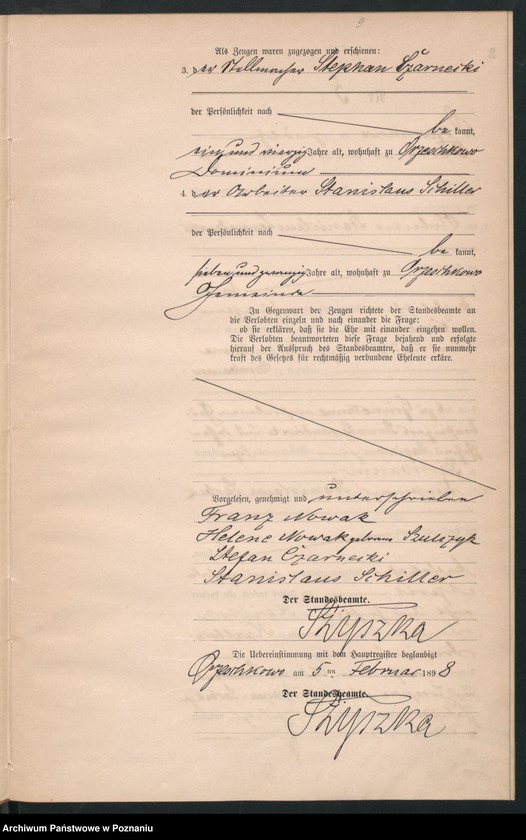 9
Als Zeugen waren zugezogen und erschienen:
3. der Stellmacher Stephan Czarnecki
der Persönlichkeit nach
be kannt,
ein und vierzig Jahre alt, wohnhaft zu Orzeschkowo
Dominium
4. der Arbeiter Stanislaus Schiller
der Persönlichkeit nach
be kannt,
sieben und zwanzig Jahre alt, wohnhaft zu Orzeschkowo
Gemeinde
In Gegenwart der Zeugen richtete der Standesbeamte an
die Verlobten einzeln und nach einander die Frage:
ob sie erklären, daß sie die Ehe mit einander eingehen wollen.
Die Verlobten beantworteten diese Frage bejahend und erfolgte
hierauf der Ausspruch des Standesbeamten, daß er sie nunmehr
kraft des Gesetzes für rechtmäßig verbundene Eheleute erkläre.
Vorgelesen, genehmigt und unterschrieben
Franz Nowak
Helene Nowak geborene Szulczyk
Stefan Czarnecki
Stanislaus Schiller
Der Standesbeamte.
Die Uebereinstimmung mit dem Hauptregister beglaubigt
Orzeschkowo am 5ten Februar 1898
Der Standesbeamte.
Archiwum Państwowe w Poznaniu